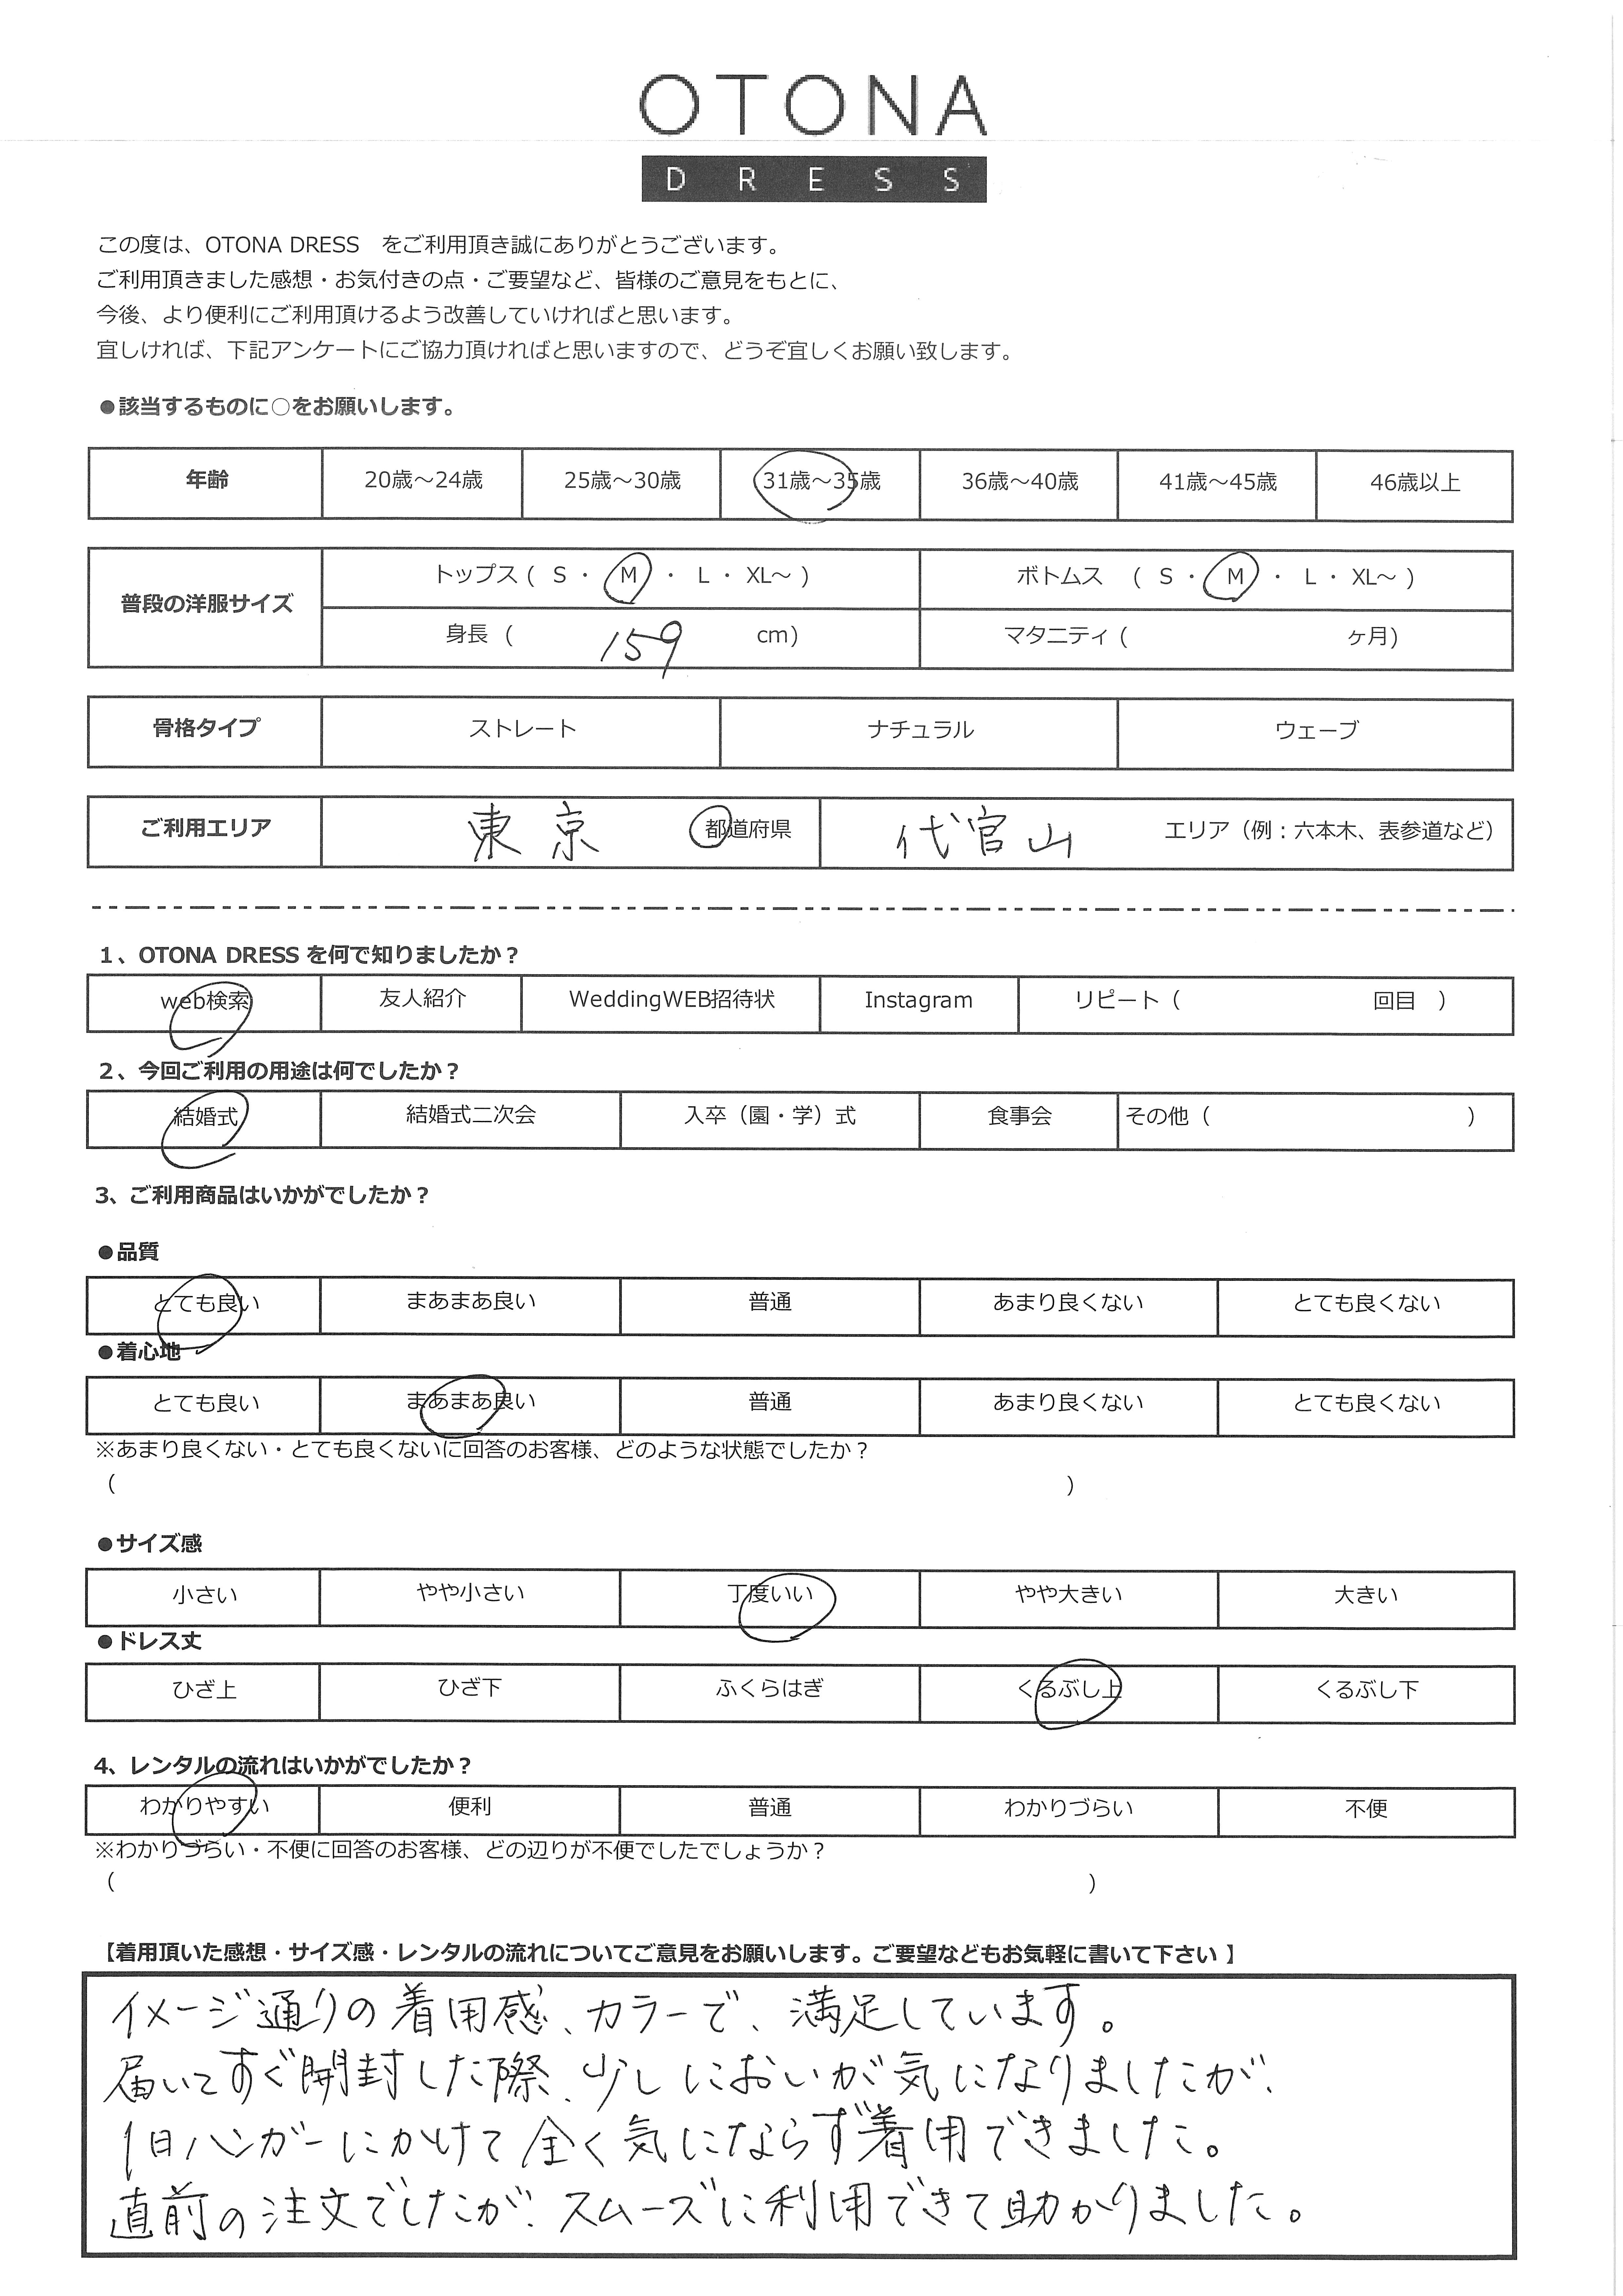 OTONA
DRESS
この度は、OTONA DRESS　をご利用頂き誠にありがとうございます。
ご利用頂きました感想・お気付きの点・ご要望など、皆様のご意見をもとに、
今後、より便利にご利用頂けるよう改善していければと思います。
宜しければ、下記アンケートにご協力頂ければと思いますので、どうぞ宜しくお願い致します。
●該当するものに○をお願いします。
年齢 20歳～24歳 25歳～30歳 31歳～35歳 36歳～40歳 41歳～45歳 46歳以上
普段の洋服サイズ トップス ( S ・ M ・ L ・ XL～ ) ボトムス ( S ・ M ・ L ・ XL～ )
身長 ( 159 cm) マタニティ ( ヶ月)
骨格タイプ ストレート ナチュラル ウェーブ
ご利用エリア 東京 都道府県 代官山 エリア（例：六本木、表参道など）
1、OTONA DRESS を何で知りましたか？
web検索 友人紹介 WeddingWEB招待状 Instagram リピート（ 回目 ）
2、今回ご利用の用途は何でしたか？
結婚式 結婚式二次会 入卒（園・学）式 食事会 その他（ ）
3、ご利用商品はいかがでしたか？
●品質
とても良い まあまあ良い 普通 あまり良くない とても良くない
●着心地
とても良い まあまあ良い 普通 あまり良くない とても良くない
※あまり良くない・とても良くないに回答のお客様、どのような状態でしたか？
（ ）
●サイズ感
小さい やや小さい 丁度いい やや大きい 大きい
●ドレス丈
ひざ上 ひざ下 ふくらはぎ くるぶし上 くるぶし下
4、レンタルの流れはいかがでしたか？
わかりやすい 便利 普通 わかりづらい 不便
※わかりづらい・不便に回答のお客様、どの辺りが不便でしたでしょうか？
（ ）
【着用頂いた感想・サイズ感・レンタルの流れについてご意見をお願いします。ご要望などもお気軽に書いて下さい 】
イメージ通りの着用感、カラーで、満足しています。
届いてすぐ開封した際、少しにおいが気になりましたが、
1日ハンガーにかけて全く気にならず着用できました。
直前の注文でしたが、スムーズに利用できて助かりました。